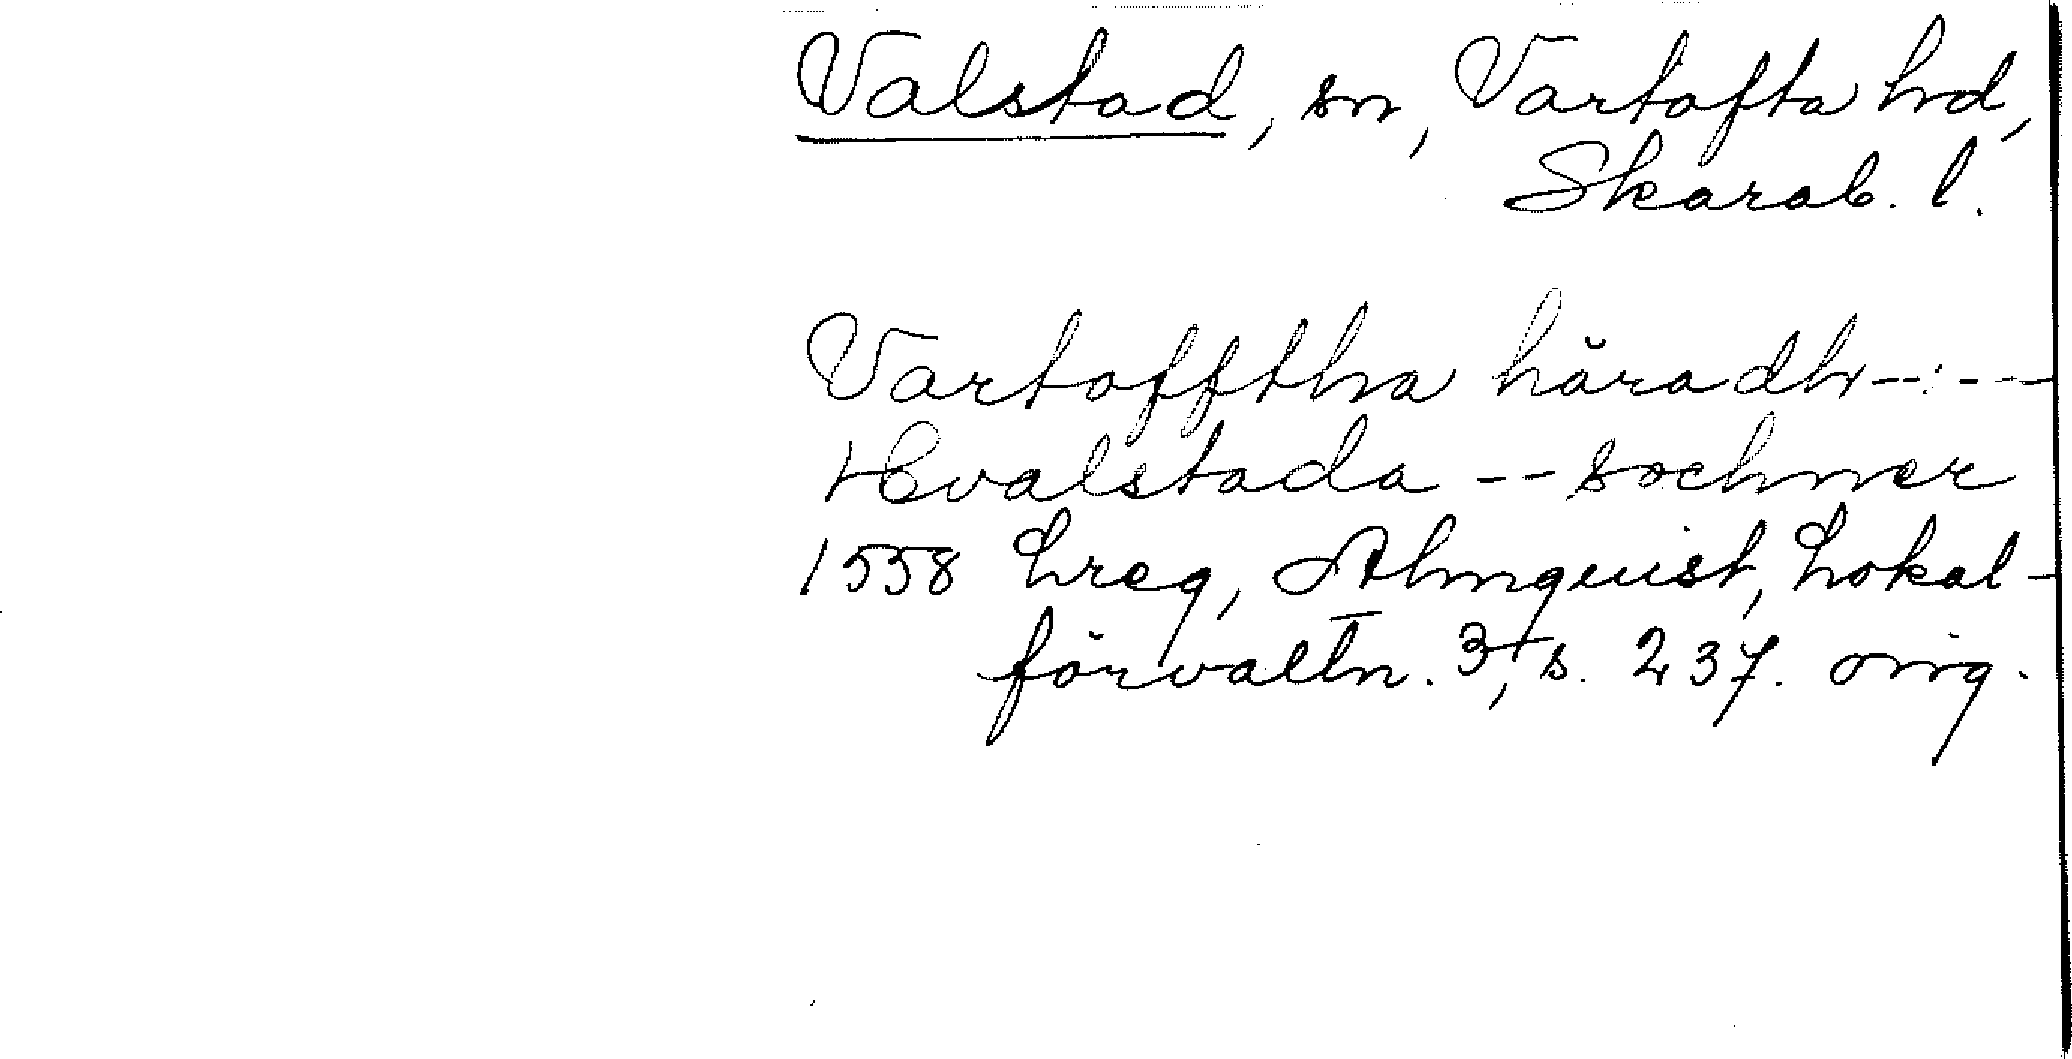 Valstad, sn, Vartofta hd,
Skarab. l.
Vartofftha häradh -- : ---
Hvalstada -- sochner
1558 Lreg, Almquist, Lokal-
förvaltn. 3, s. 237. orig.